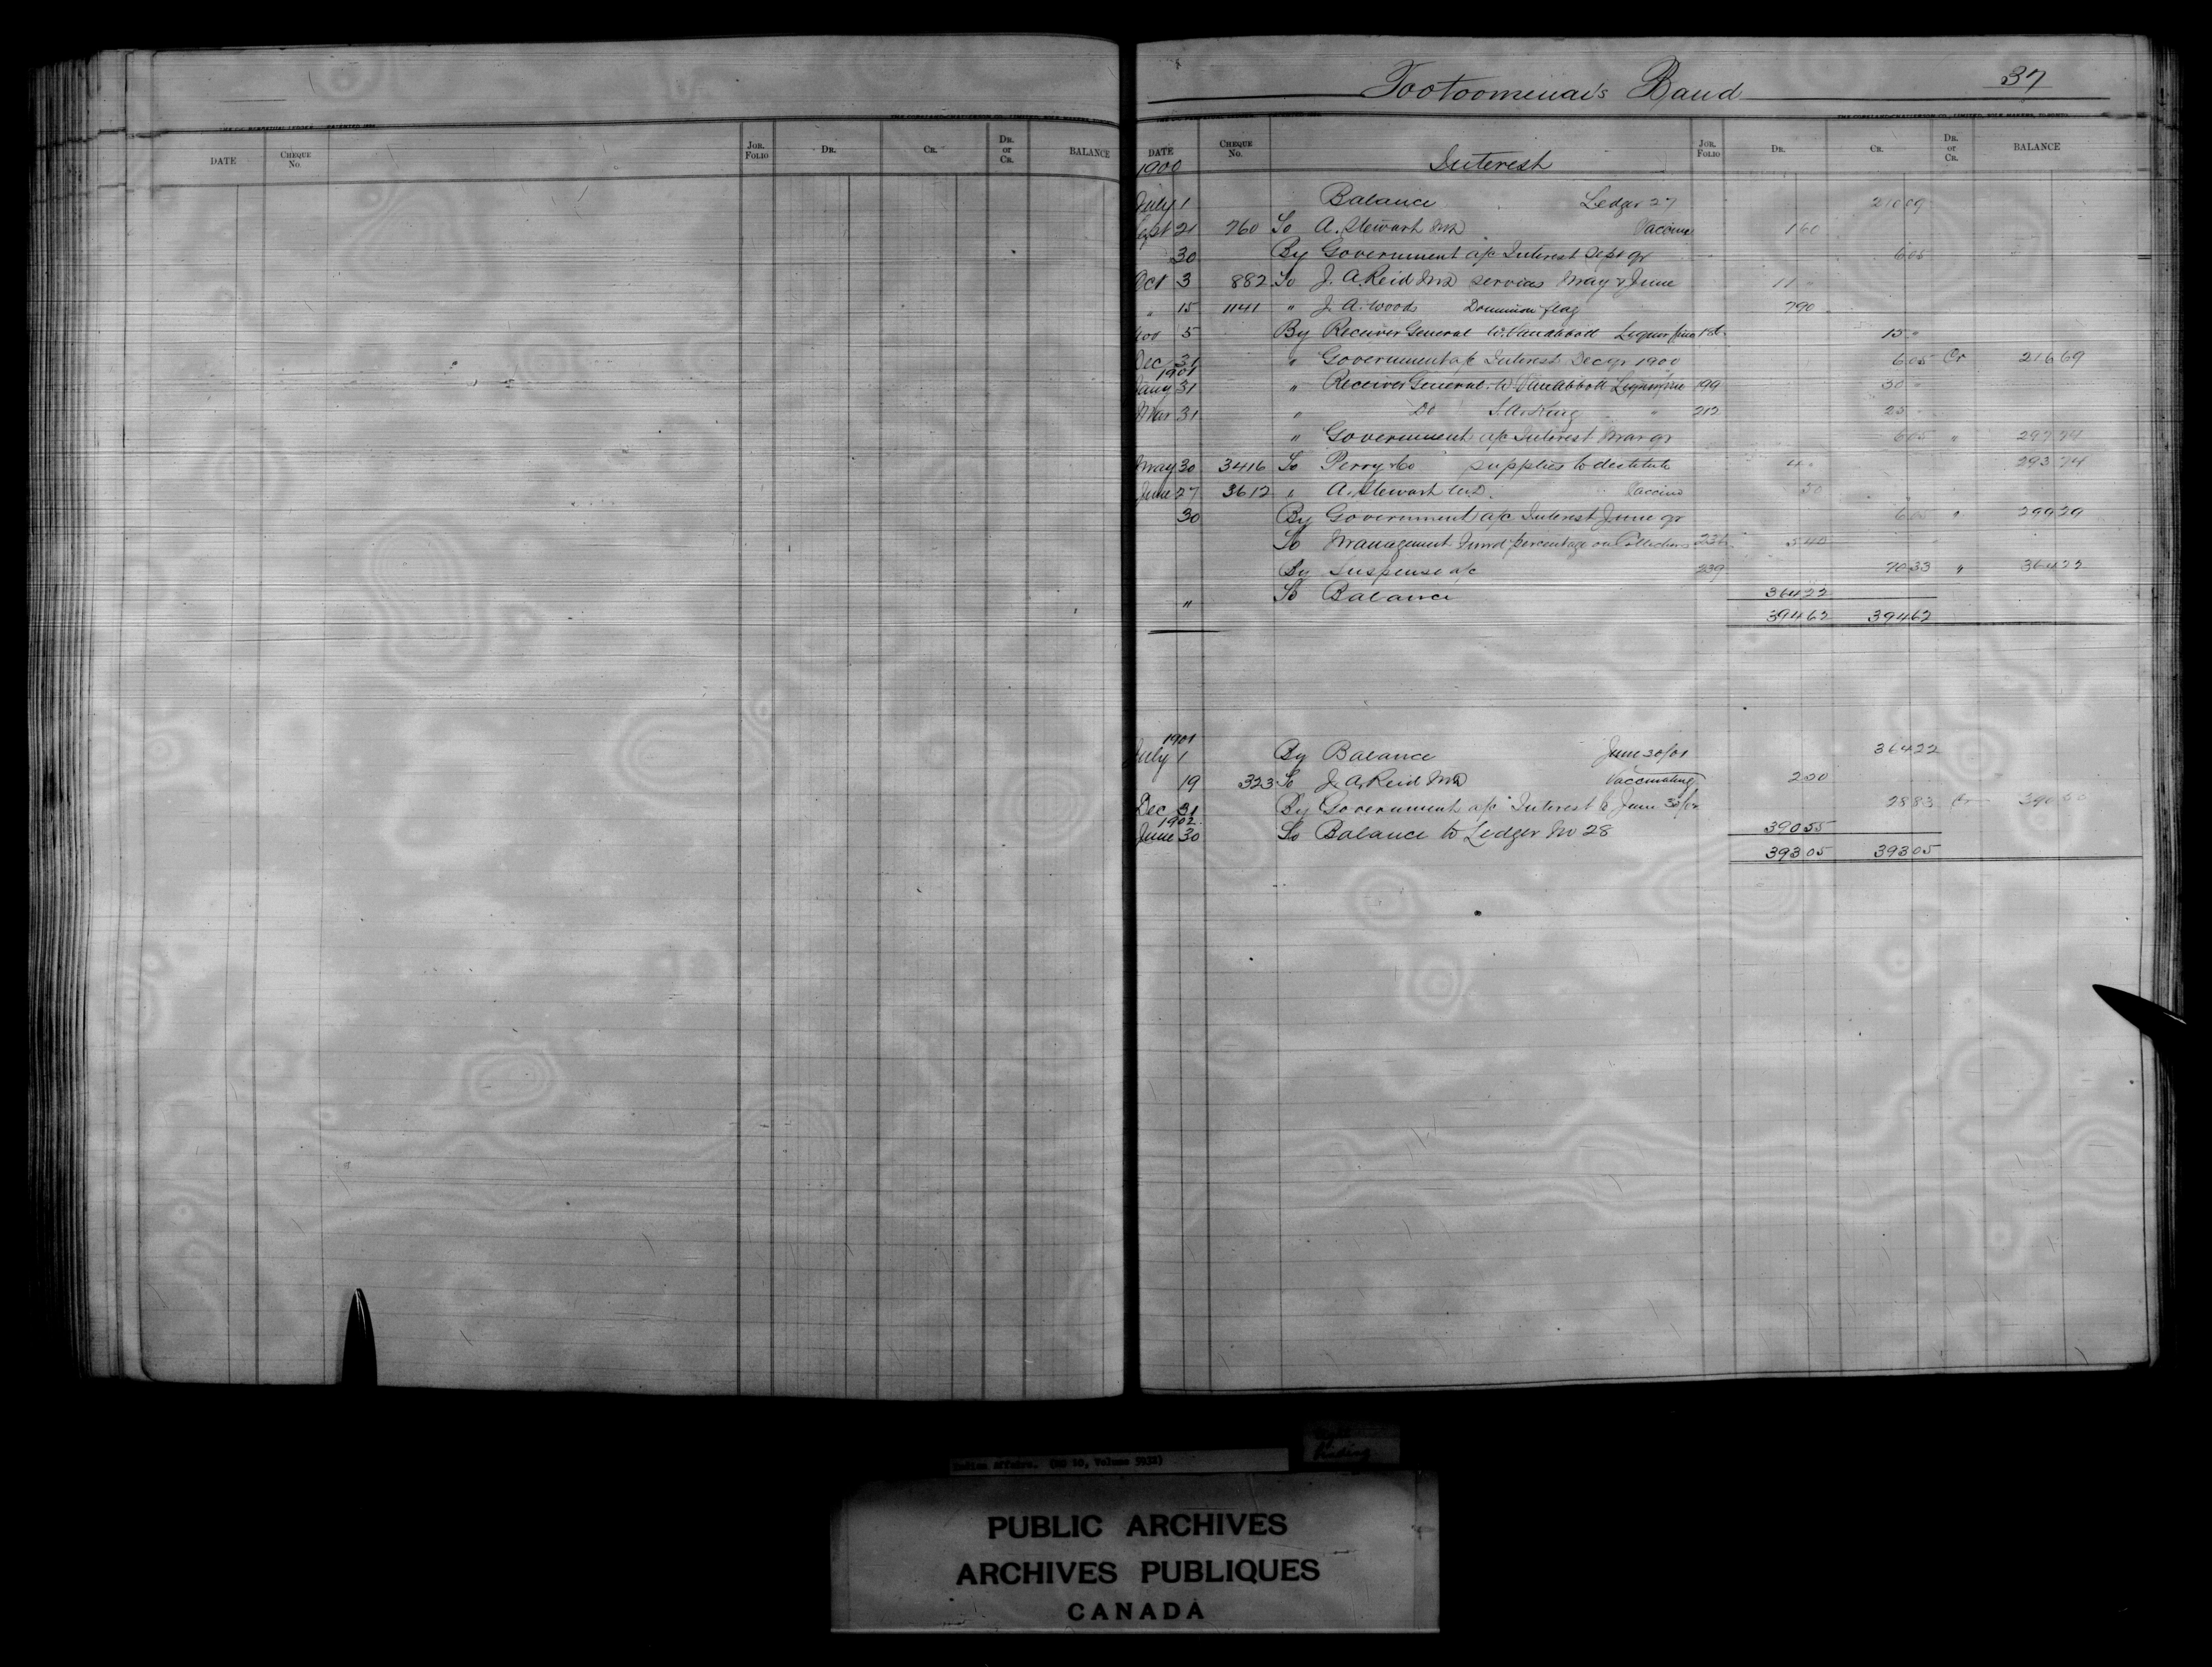 DATE CHEQUE No. JOR. FOLIO DR. CR. DR. or CR. BALANCE
Tootoomenai's Band 37
DATE CHEQUE No. JOR. FOLIO DR. CR. DR. or CR. BALANCE
1900 Interest
July 1 Balance Ledger 27 210 09
Sept 21 760 To A. Stewart MD Vaccine 1 60
30 By Government a/c Interest Sept qr 6 05
Oct 3 882 To J. A. Reid MD services May & June 11 "
" 15 1141 " J. A. Woods Dominion flag 7 90
Nov 5 By Receiver General W. VanAbbott Liquor fine 15 "
Dec 31 " Government a/c Interest Dec qr 1900 6 05 Cr 216 69
1901
Jany 31 " Receiver General W. VanAbbott Liquor fine 199 30 "
Mar 31 " Do S. A. King " 212 25 "
" Government a/c Interest Mar qr 6 05 " 297 74
May 30 3416 To Perry & Co supplies to destitute 4 " 293 74
June 27 3612 " A. Stewart M.D. Vaccine 50
30 By Government a/c Interest June qr 6 05 " 299 29
To Management Fund percentage on Collections 5 40
By Suspense a/c 239 70 33 " 364 22
" To Balance 364 22
394 62 394 62
1901
July 1 By Balance June 30/01 364 22
19 323 To J. A. Reid MD Vaccinating 2 50
Dec 31 By Government a/c Interest to June 30/02 28 83 Cr
1902
June 30 To Balance to Ledger No 28 390 55
393 05 393 05
Indian Affairs. (RG 10, Volume 5932)
PUBLIC ARCHIVES
ARCHIVES PUBLIQUES
CANADA